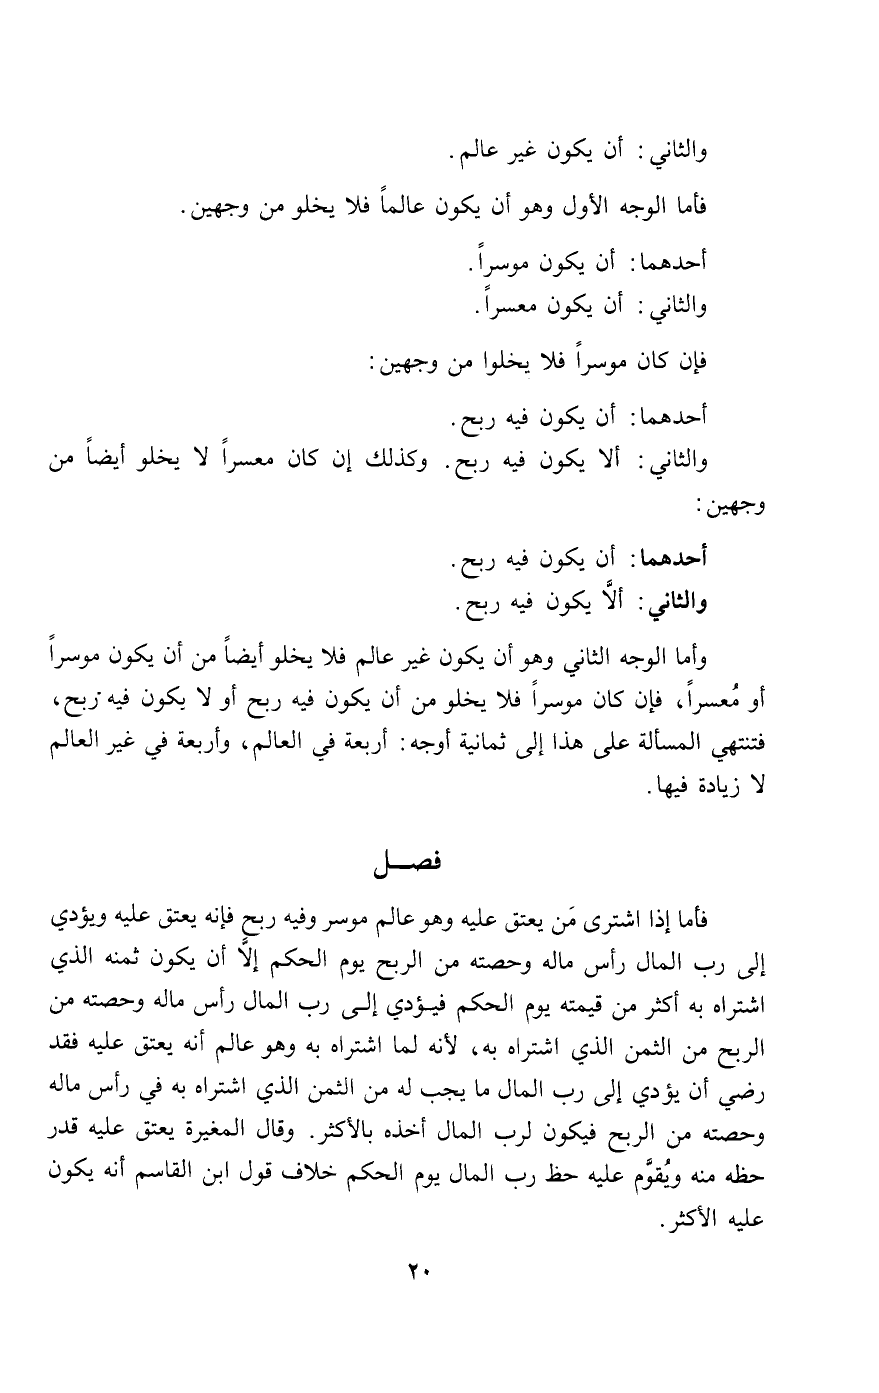 والثاني: أن يكون غير عالم.
فأما الوجه الأول وهو أن يكون عالماً فلا يخلو من وجهين.
أحدهما: أن يكون موسراً.
والثاني: أن يكون معسراً.
فإن كان موسراً فلا يخلوا من وجهين:
أحدهما: أن يكون فيه ربح.
والثاني: ألا يكون فيه ربح. وكذلك إن كان معسراً لا يخلو أيضاً من
وجهين:
أحدهما: أن يكون فيه ربح.
والثاني: ألاَّ يكون فيه ربح.
وأما الوجه الثاني وهو أن يكون غير عالم فلا يخلو أيضاً من أن يكون موسراً
أو مُعسراً، فإن كان موسراً فلا يخلو من أن يكون فيه ربح أو لا يكون فيه ربح،
فتنتهي المسألة على هذا إلى ثمانية أوجه: أربعة في العالم، وأربعة في غير العالم
لا زيادة فيها.
فصـــل
فأما إذا اشترى مَن يعتق عليه وهو عالم موسر وفيه ربح فإنه يعتق عليه ويؤدي
إلى رب المال رأس ماله وحصته من الربح يوم الحكم إلاَّ أن يكون ثمنه الذي
اشتراه به أكثر من قيمته يوم الحكم فيـؤدي إلـى رب المال رأس ماله وحصته من
الربح من الثمن الذي اشتراه به، لأنه لما اشتراه به وهو عالم أنه يعتق عليه فقد
رضي أن يؤدي إلى رب المال ما يجب له من الثمن الذي اشتراه به في رأس ماله
وحصته من الربح فيكون لرب المال أخذه بالأكثر. وقال المغيرة يعتق عليه قدر
حظه منه ويُقوَّم عليه حظ رب المال يوم الحكم خلاف قول ابن القاسم أنه يكون
عليه الأكثر.
٢٠